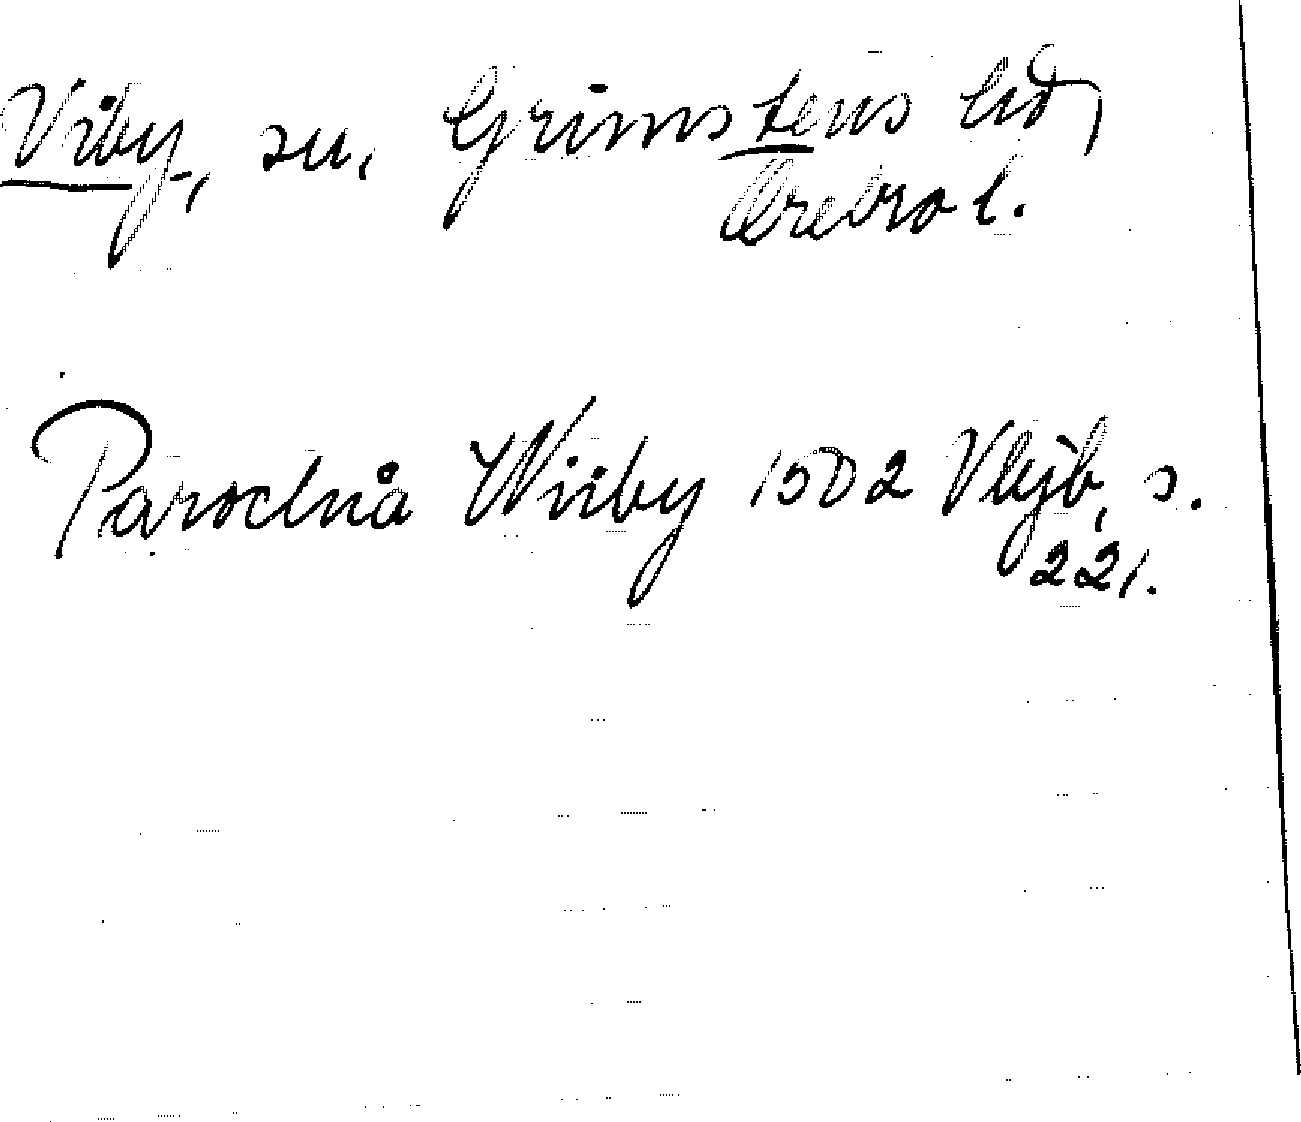 Viby, sn, Grimstens hd,
Örebro l.
Parochiå Wiiby 1502 Vlijb, s.
221.